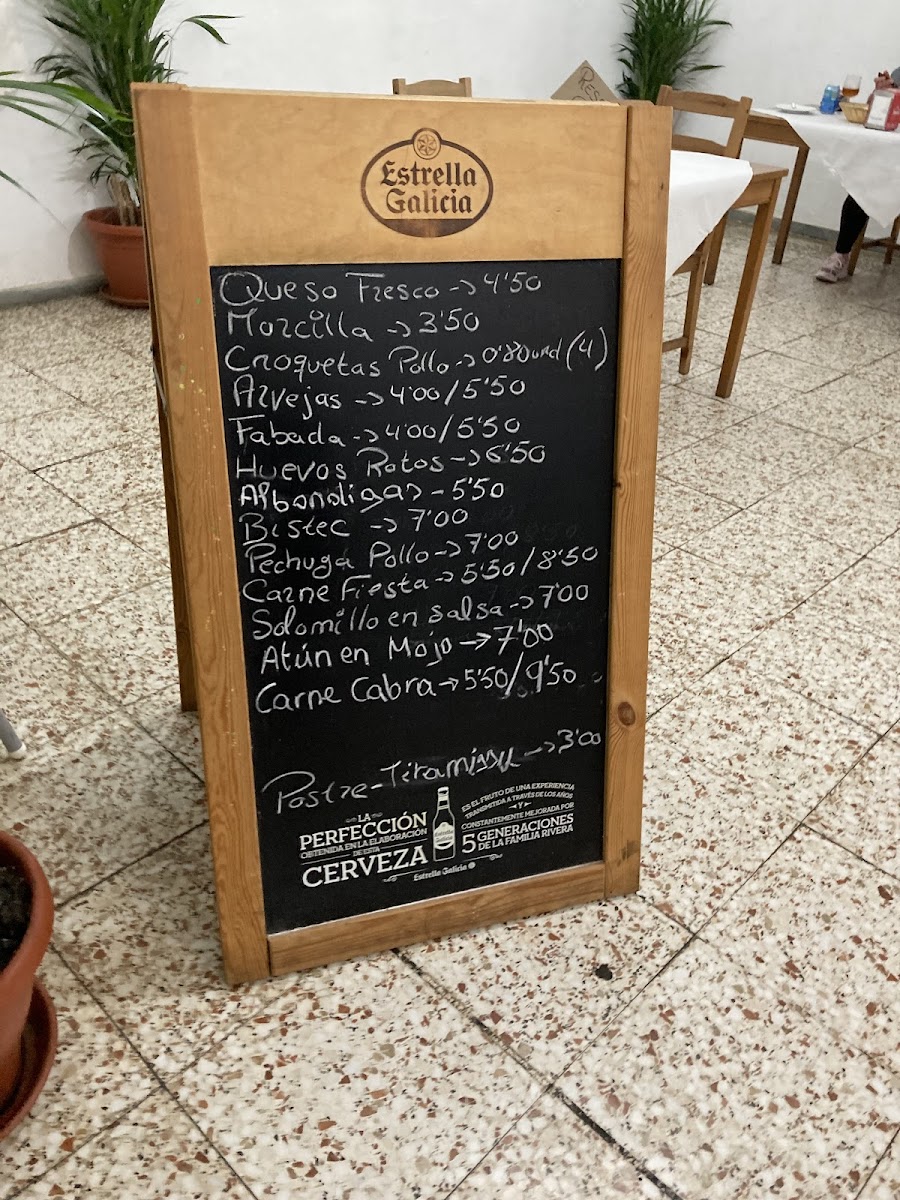 Estrella
Galicia
Queso Fresco -> 4'50
Morcilla -> 3'50
Croquetas Pollo -> 0'80und (4)
Arvejas -> 4'00/5'50
Fabada -> 4'00/5'50
Huevos Rotos -> 6'50
Albondigas - 5'50
Bistec -> 7'00
Pechuga Pollo -> 7'00
Carne Fiesta -> 5'50/8'50
Solomillo en salsa -> 7'00
Atún en Mojo -> 7'00
Carne Cabra -> 5'50/9'50
Postre - Tiramissu -> 3'00
LA
PERFECCIÓN
OBTENIDA EN LA ELABORACIÓN
DE ESTA
CERVEZA
ES EL FRUTO DE UNA EXPERIENCIA
TRANSMITIDA A TRAVÉS DE LOS AÑOS
Y
CONSTANTEMENTE MEJORADA POR
5 GENERACIONES
DE LA FAMILIA RIVERA
Estrella Galicia